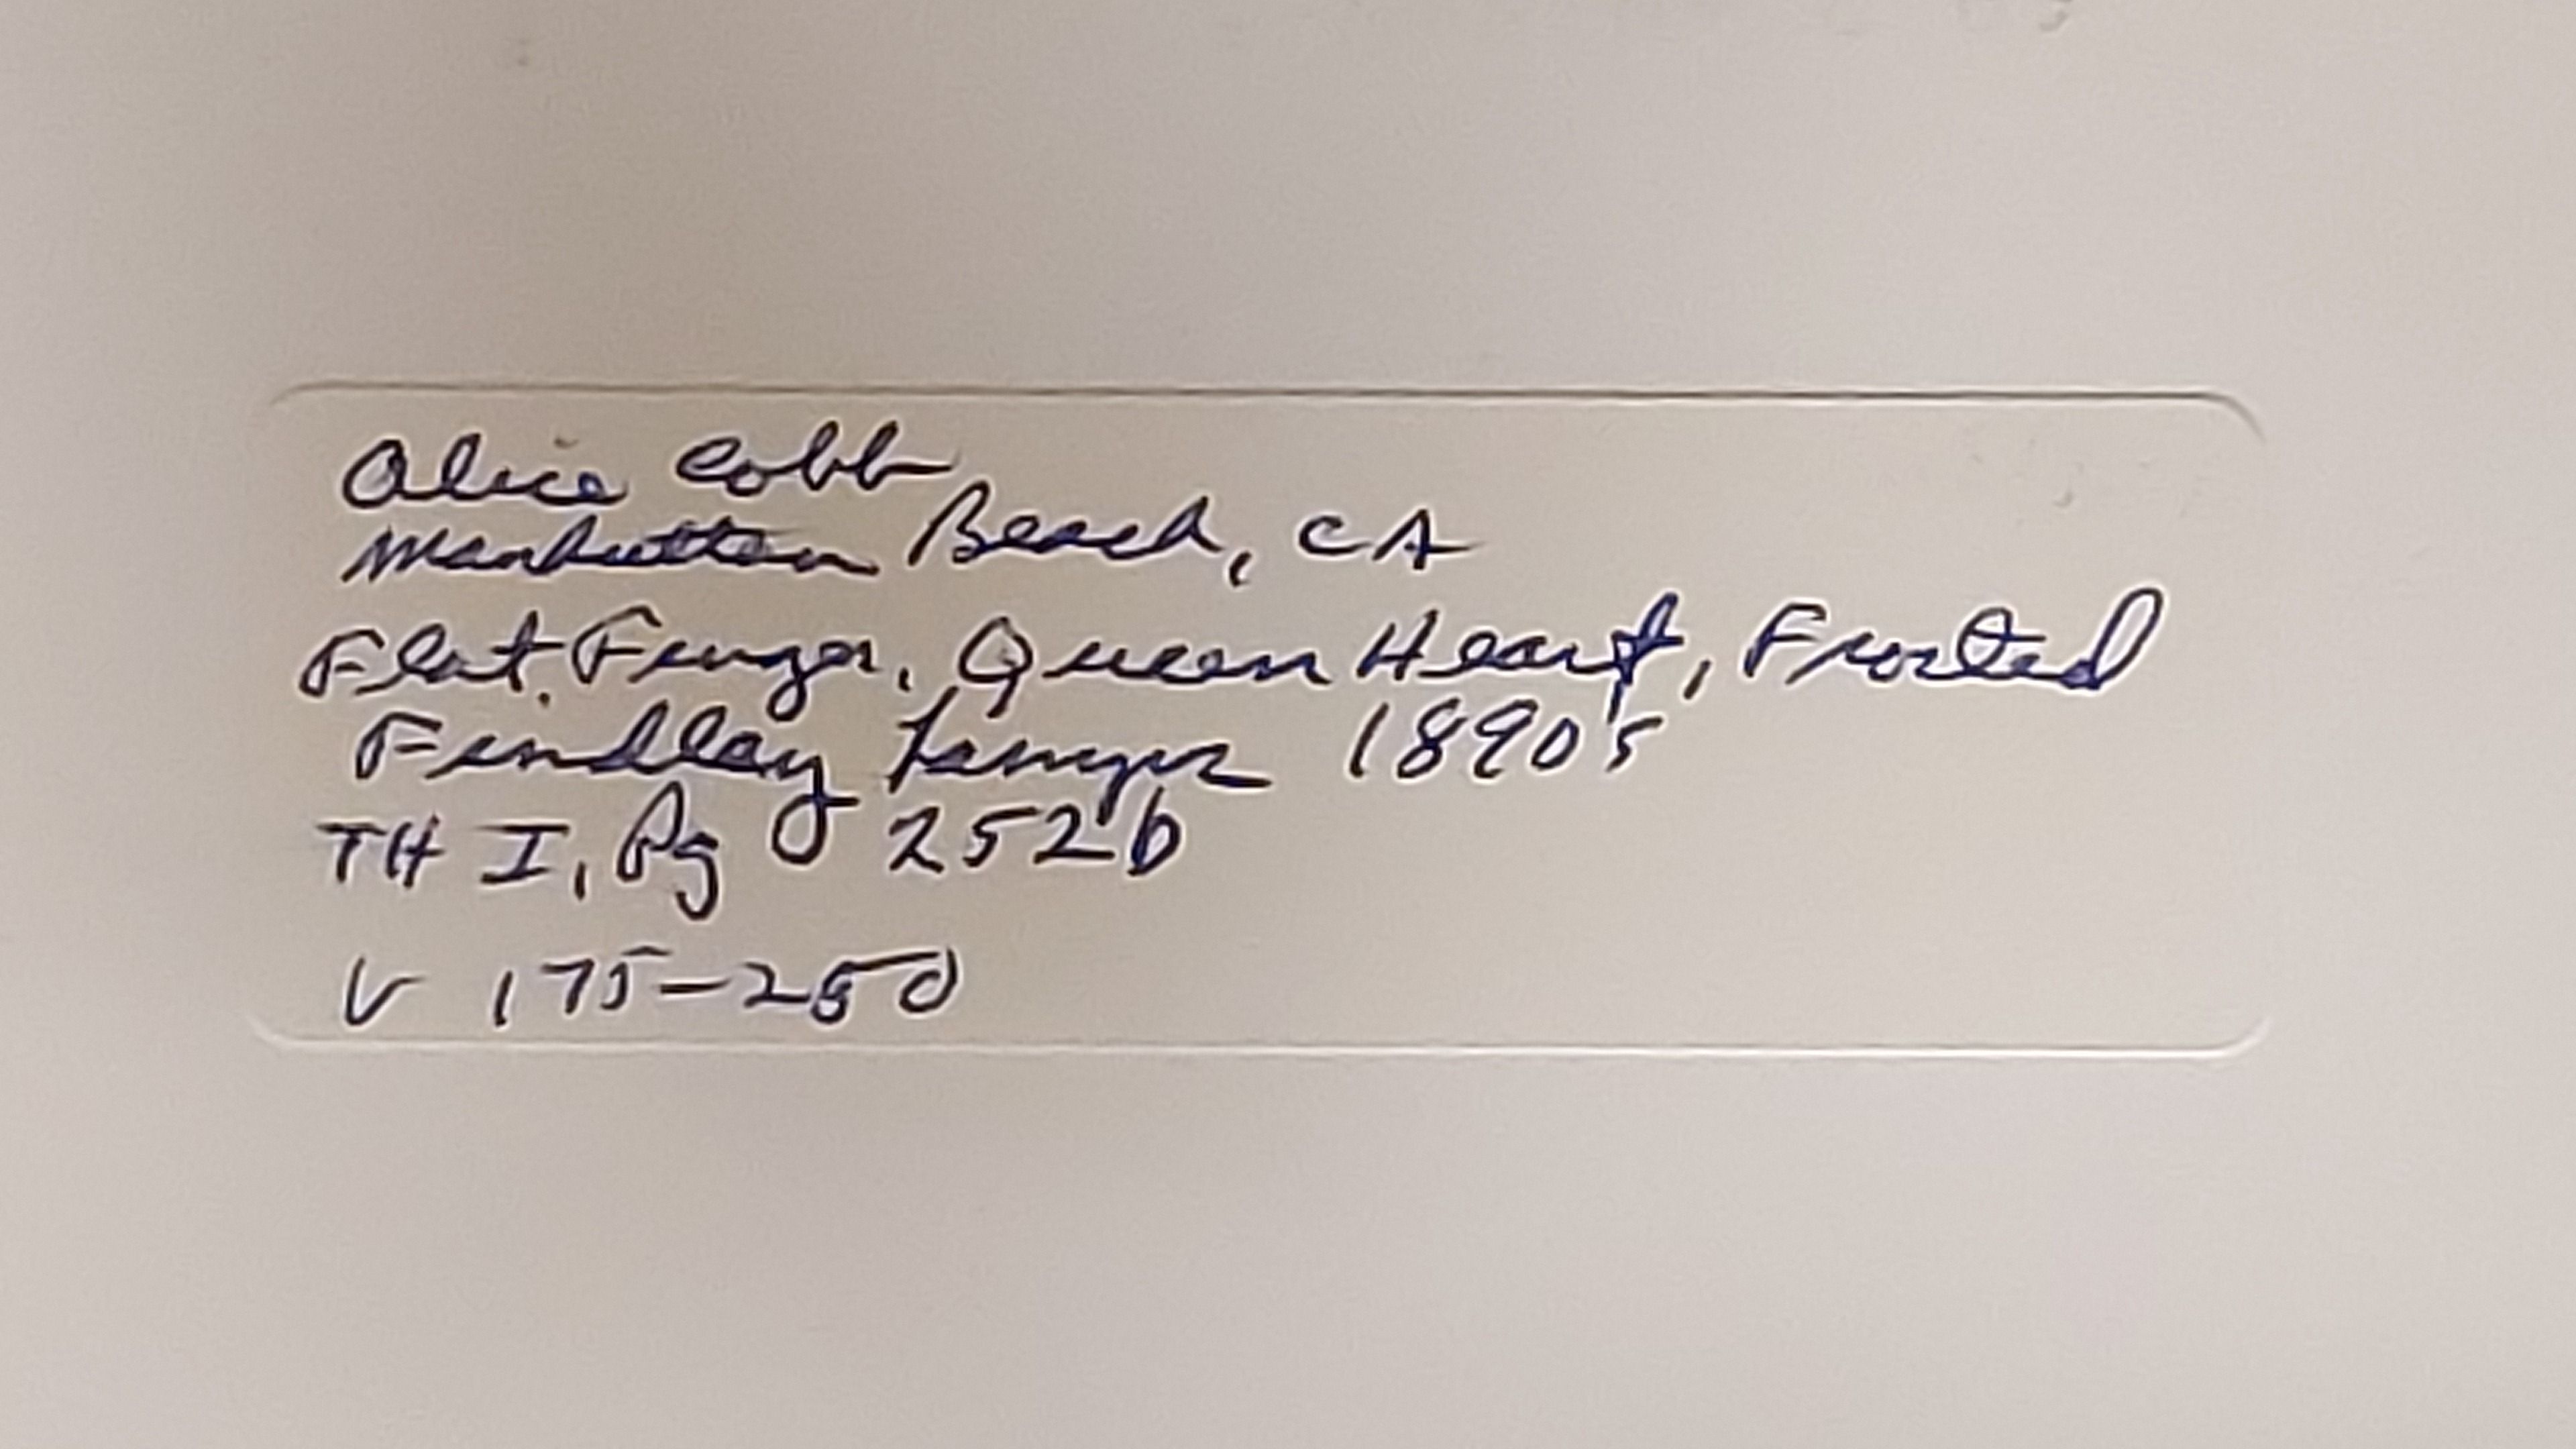 Alice Cobb
Manhattan Beach, CA
Flat Finger, Queen Heart, Frosted
Findlay Lamps 1890s
TH I, Pg 252b
V 175-250